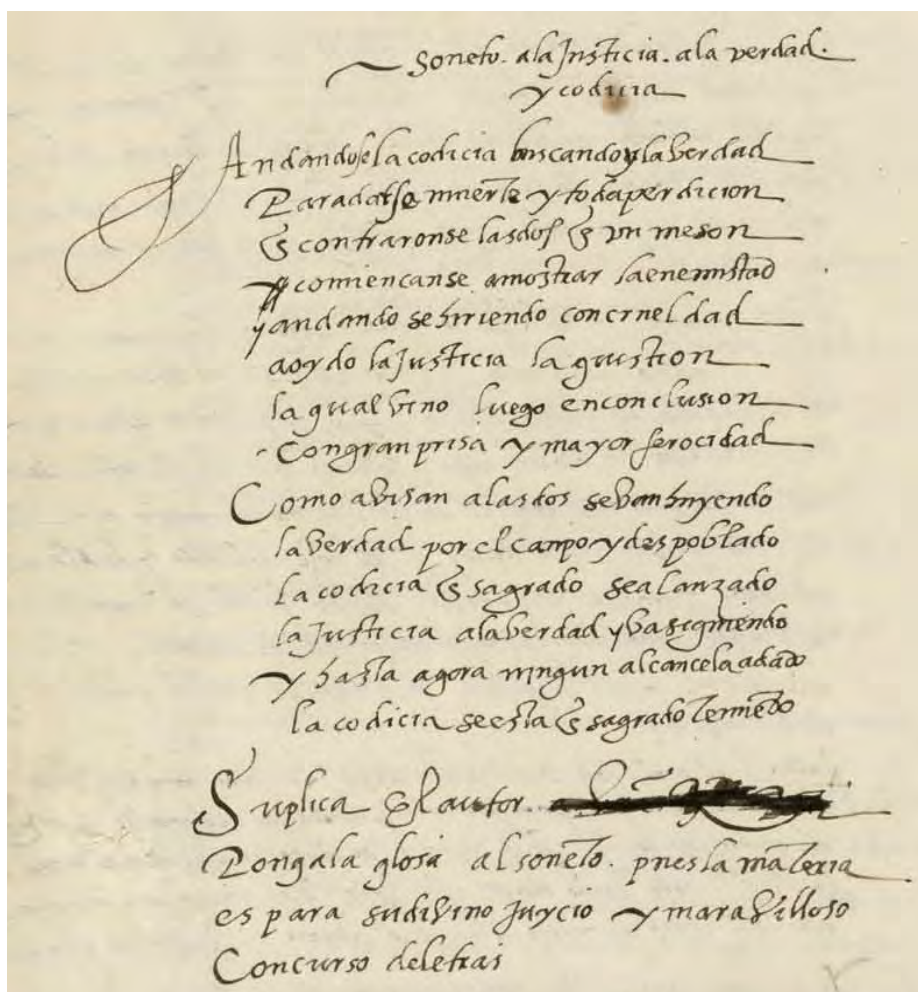 Soneto. a la Justicia. a la verdad.
y codicia
Andandose la codicia buscando y la verdad
Para darse muerte y toda perdicion
Encontraronse las dos En vn meson
y comiencanse a mostrar la enemistad
y andandose hiriendo con crueldad
a oydo la Justicia la quistion
la qual vino luego en conclusion
Con gran prisa y mayor ferocidad
Como avisan a las dos se van huyendo
la verdad por el campo y despoblado
la codicia En sagrado se a lanzado
la Justicia a la verdad y va siguiendo
y hasta agora ningun alcance la a dado
la codicia se esta En sagrado
Suplica El autor.
Ponga la glosa al soneto. pues la materia
es para su divino Juycio y maravilloso
Concurso de letras